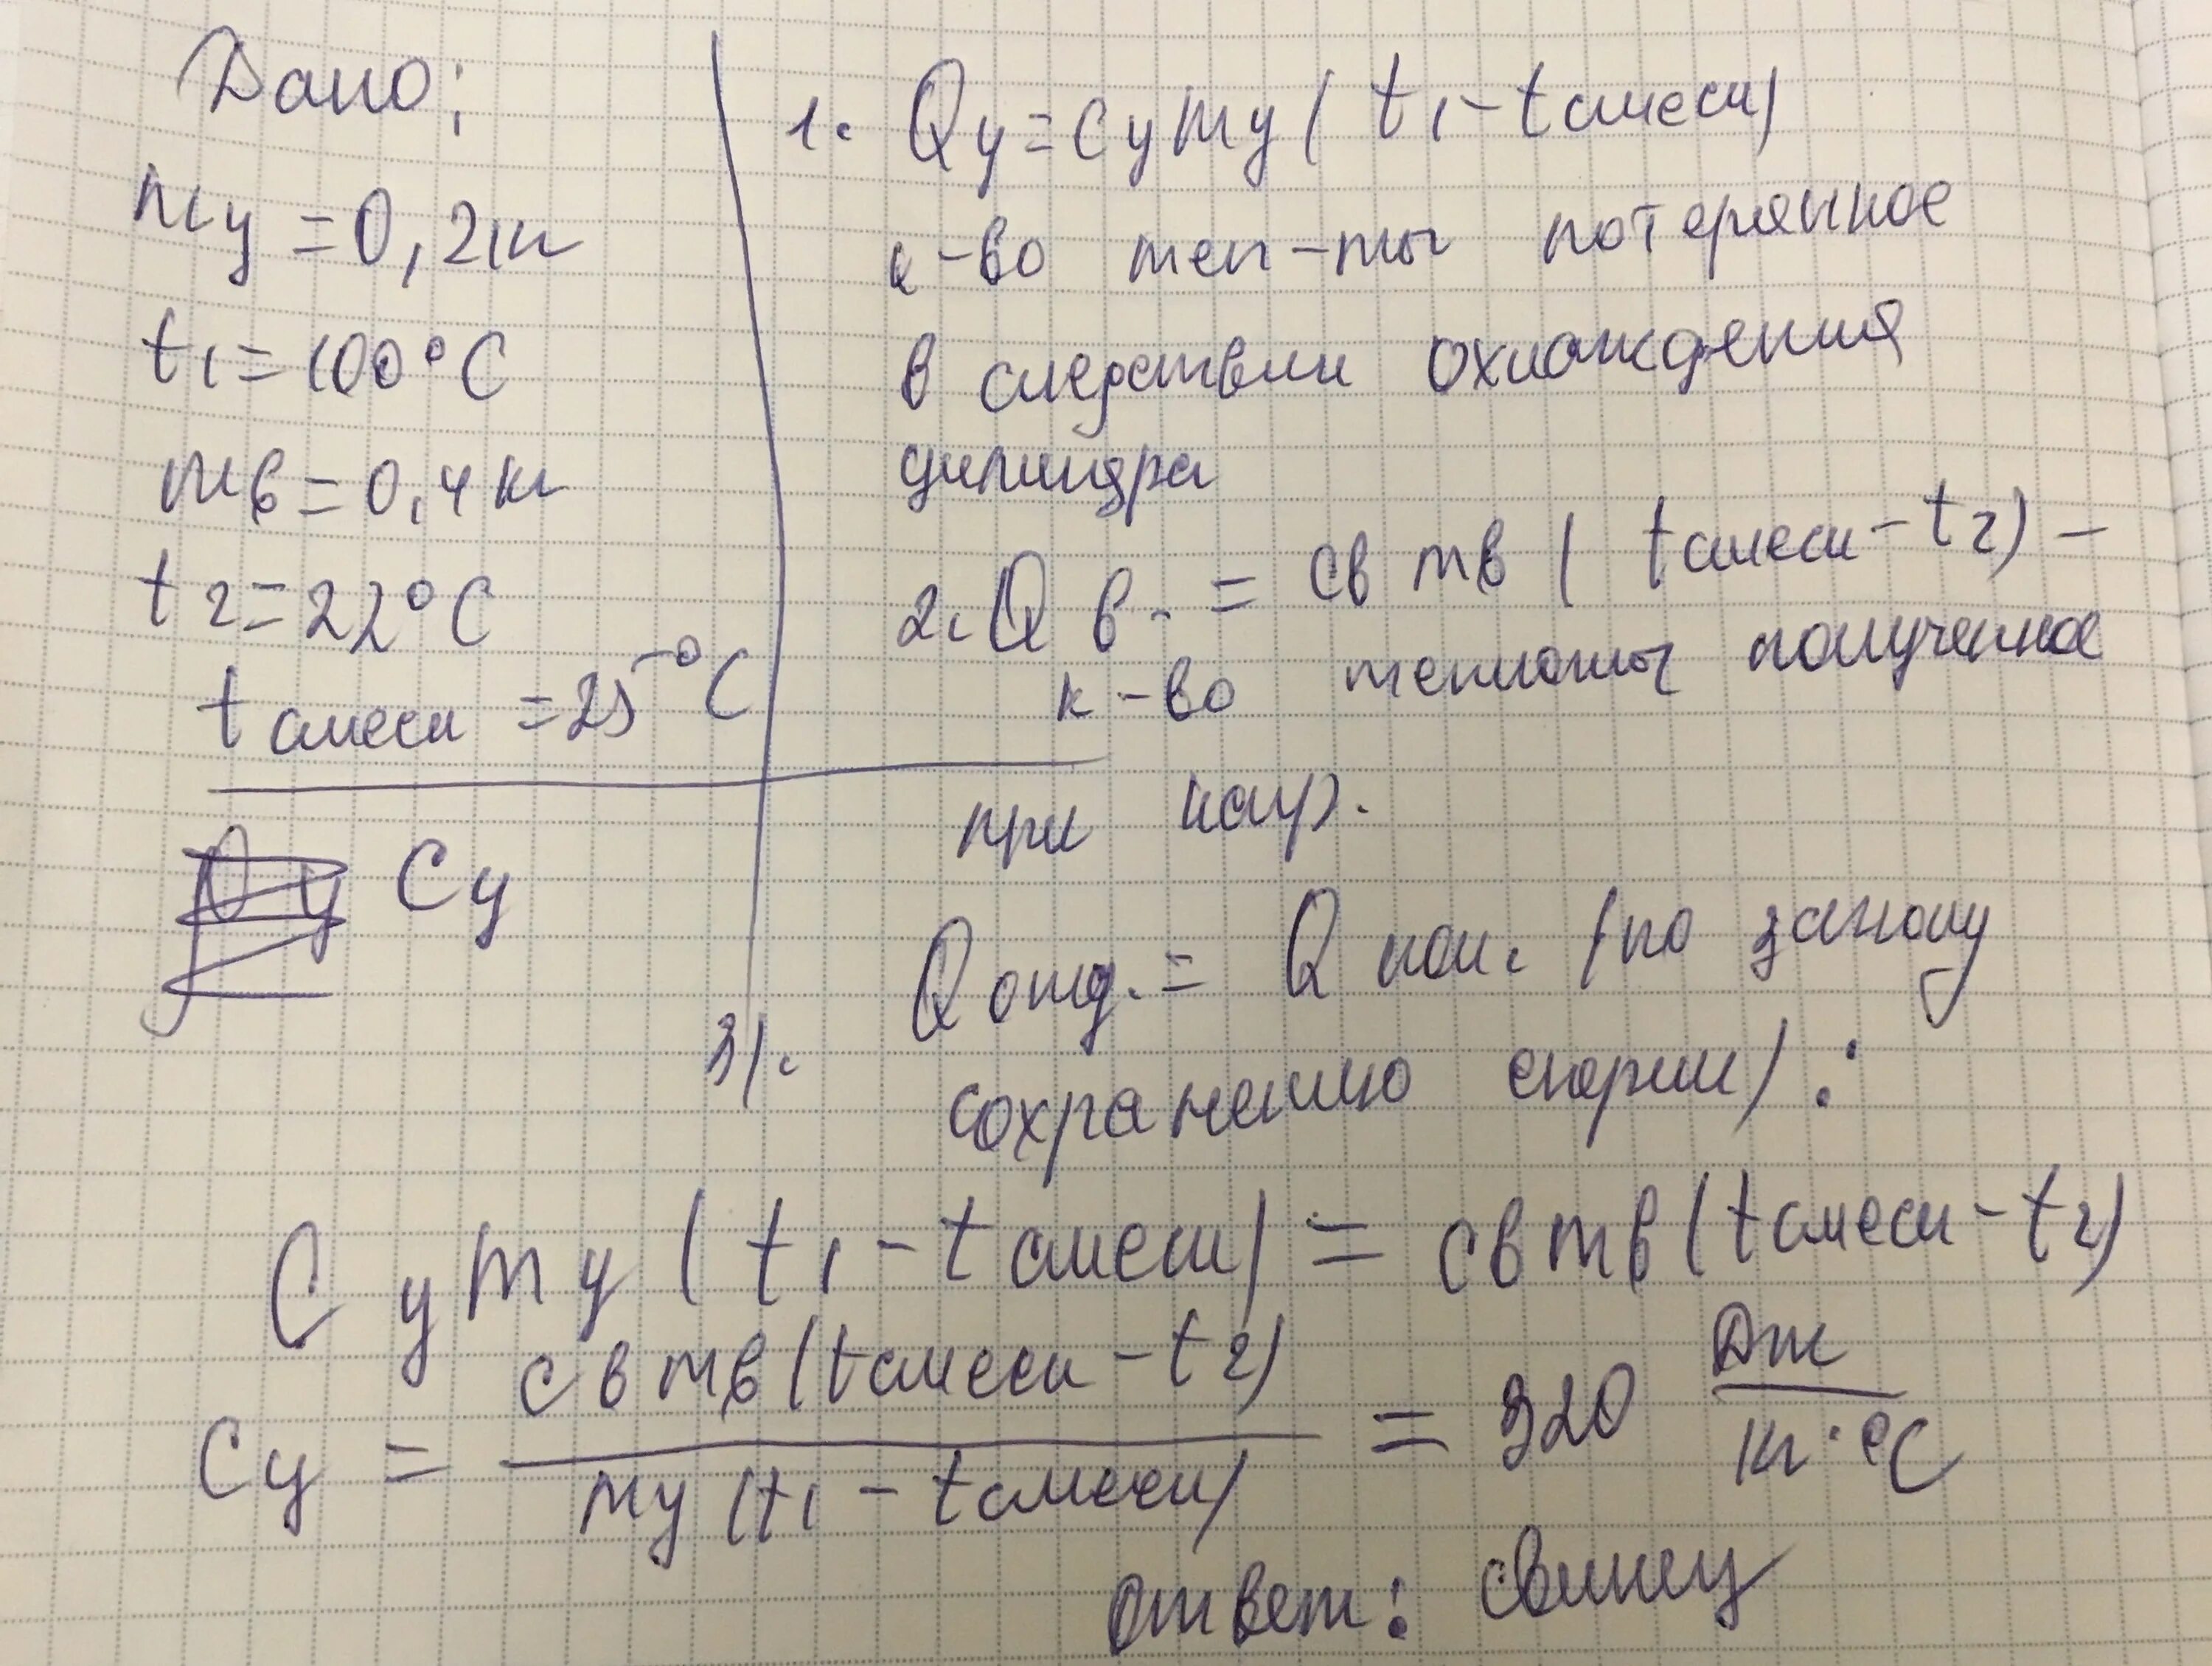 Дано:
mц = 0,2кг
t1 = 100°C
mв = 0,4 кг
t2 = 22°C
t смеси = 25°C
Cц
1. Qц = cц mц (t1 - t смеси)
к-во теп-ты потерянное
в следствии охлаждения
цилиндра
2. Q в. = cв mв (t смеси - t2) -
к-во теплоты полученное
при нагр.
3). Q отд. = Q пол. (по закону
сохранению енергии):
Cц mц (t1 - t смеси) = cв mв (t смеси - t2)
Cц = cв mв (t смеси - t2) / mц (t1 - t смеси) = 320 Дж / кг·°C
Ответ: свинец